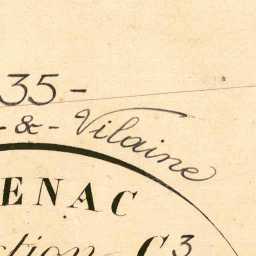 35-
-&- Vilaine
ENAC
ction C3